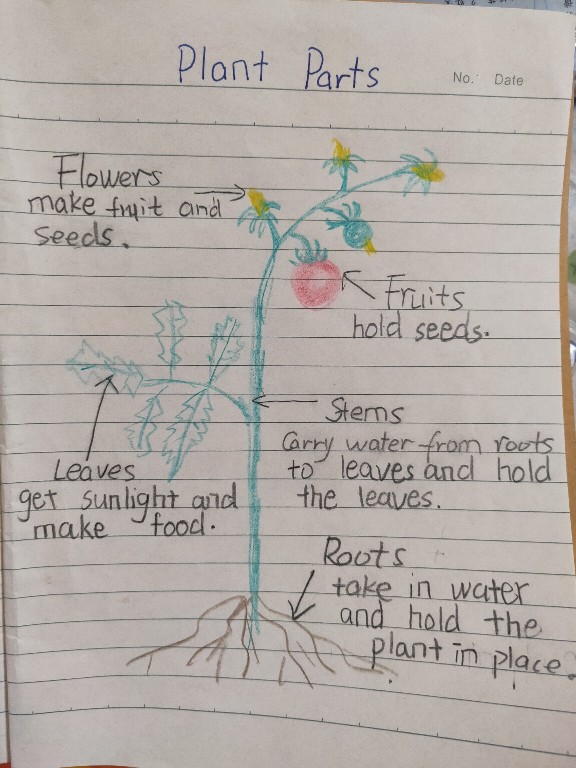 Plant Parts
No.   Date
Flowers
make fruit and
seeds.
Fruits
hold seeds.
Stems
Carry water from roots
to leaves and hold
the leaves.
Leaves
get sunlight and
make food.
Roots
take in water
and hold the
plant in place.